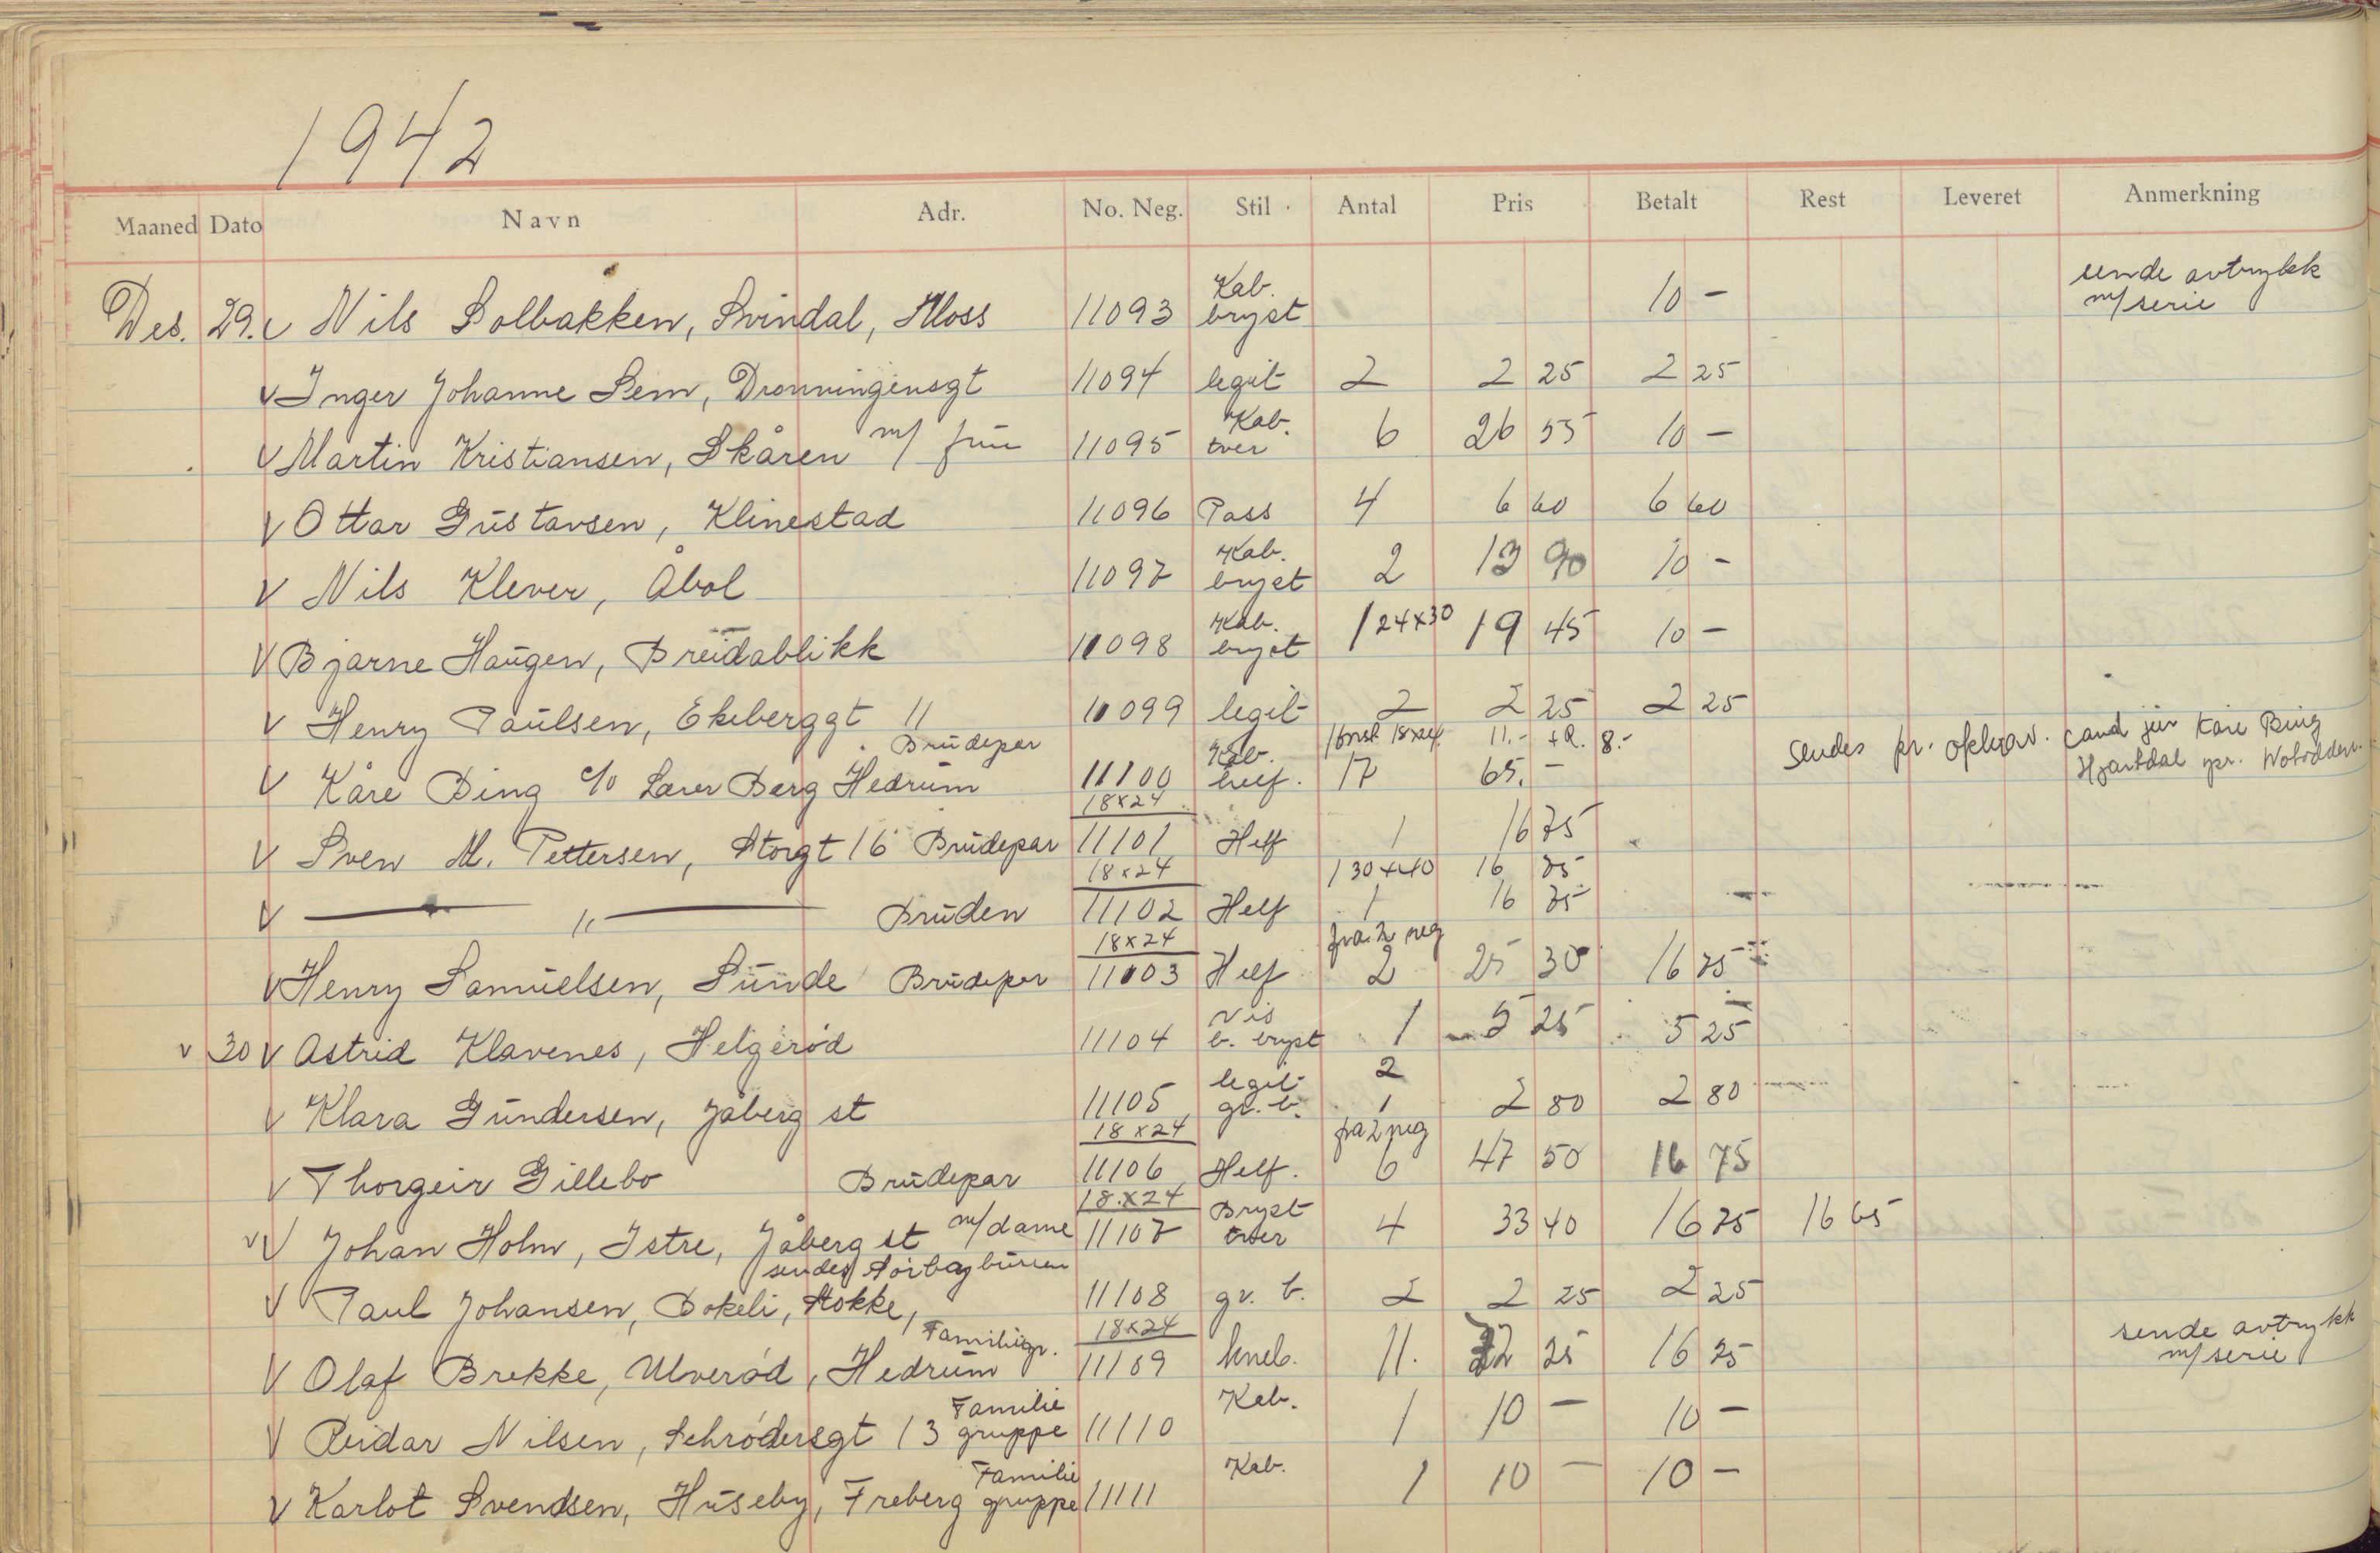 1942
Maaned Dato Navn Adr. No. Neg. Stil Antal Pris Betalt Rest Leveret Anmerkning
Des. 29. v Nils Solbakken, Svindal, Moss 11093 Kab. bryst 10 - sende avtrykk m/serie
v Inger Johanne Sem, Dronningensgt 11094 legit 2 2 25 2 25
v Martin Kristiansen, Skåren m/ frue 11095 Kab. tver 6 26 55 10 -
v Ottar Gustavsen, Klinestad 11096 Pass 4 6 60 6 60
v Nils Klever, Åbol 11097 Kab. bryst 2 13 90 10 -
v Bjarne Haugen, Breidablikk 11098 Kab. bryst 1 24x30 19 45 10 -
v Henry Paulsen, Ekeberggt 11 11099 legit 2 2 25 2 25
Brudepar 18x24 11.- + 2. 8.-
v Kåre Bing c/o Lærer Berg Hedrum 11100 Kab. helf. 17 65. - Sendes pr. opkrav. cand jur Kåre Bing Hjartdal pr. Notodden.
18x24
v Sven M. Pettersen, Storgt 16 Brudepar 11101 Helf 1 16 75
18x24 1 30x40 16 75
v — " — Bruden 11102 Helf 1 16 75
18x24 fra 2 neg
v Henry Samuelsen, Sunde Brudepar 11103 Helf 2 25 30 16 75
v 30 v Astrid Klavenes, Helgerød 11104 Vis b. bryst 1 5 25 5 25
legit 2
v Klara Gundersen, Jåberg st 11105 gr. b. 1 2 80 2 80
18x24 fra 2 neg
v Thorgeir Gillebo Brudepar 11106 Helf. 6 47 50 16 75
18x24
v v Johan Holm, Istre, Jåberg st m/dame 11107 Bryst tver 4 33 40 16 75 16 65
sendes
v Paul Johansen, Bokeli, Stokke, 11108 gr. b. 2 2 25 2 25
Familiegr. 18x24
v Olaf Brekke, Ulverød, Hedrum 11109 kneb. 11. 32 25 16 25 sende avtrykk m/serie
v Reidar Nilsen, Schrødersgt 13 Familie gruppe 11110 Kab. 1 10 - 10 -
v Karlot Svendsen, Huseby, Freberg Familie gruppe 11111 Kab. 1 10 - 10 -